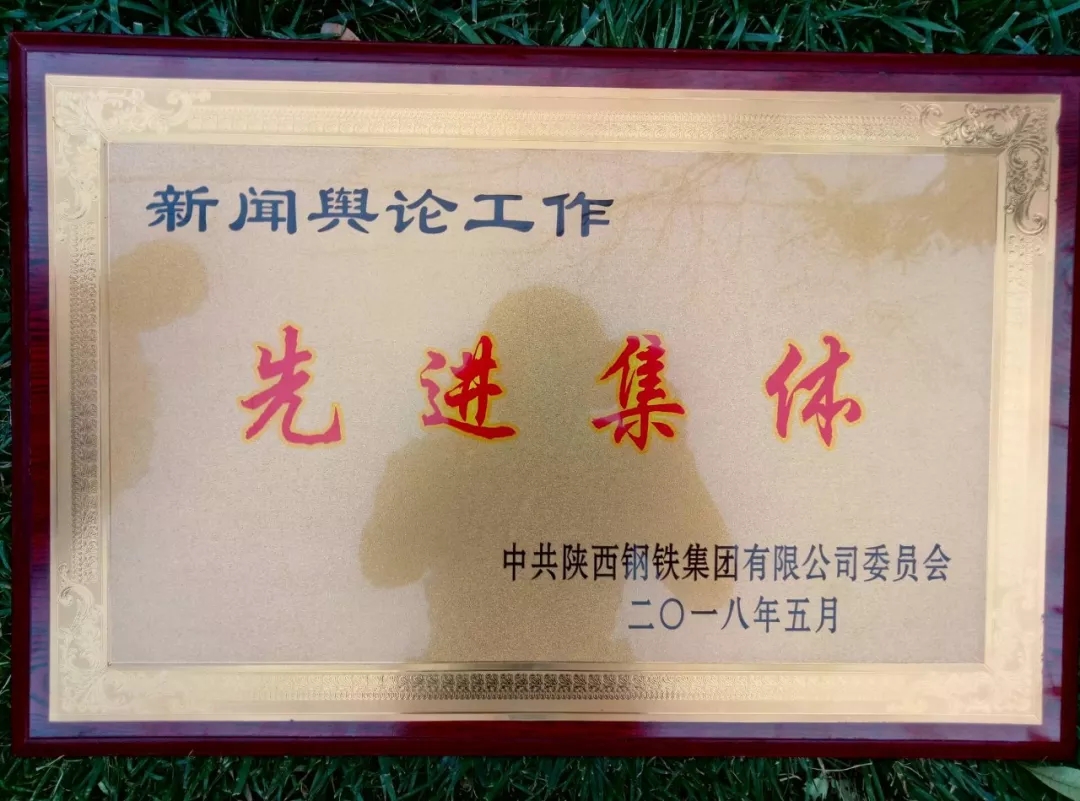 新闻舆论工作
先进集体
中共陕西钢铁集团有限公司委员会
二〇一八年五月